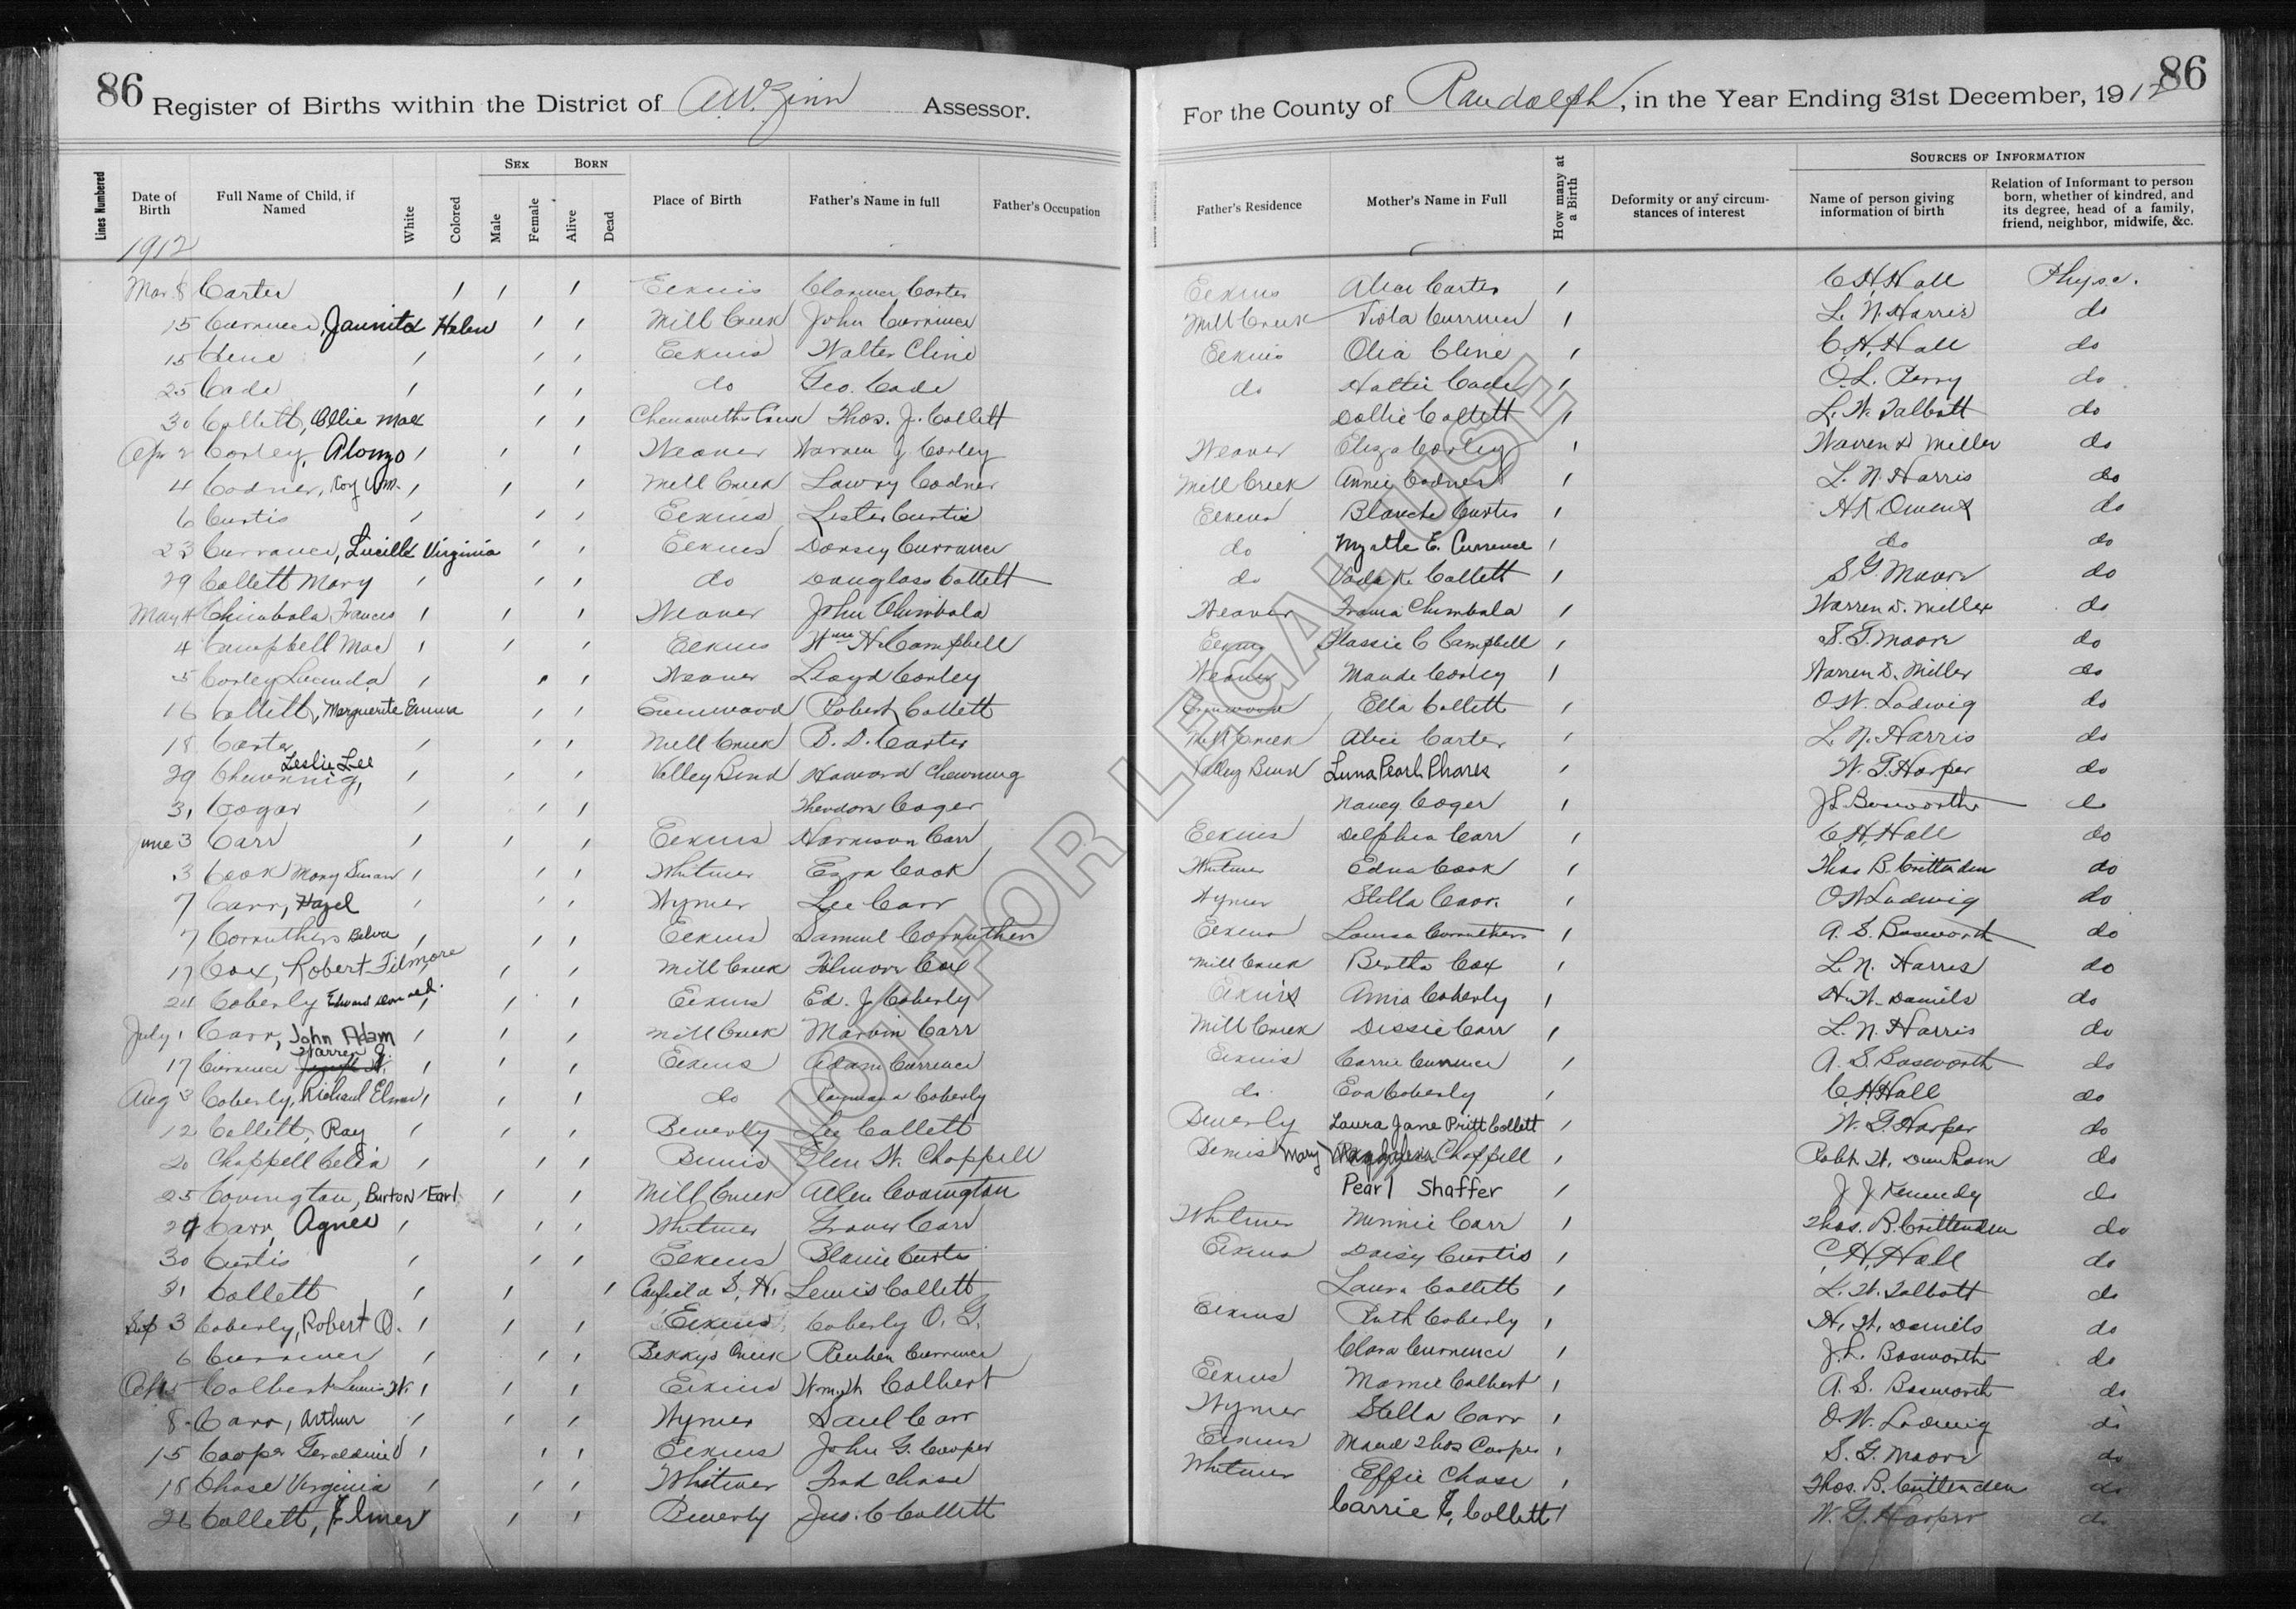 86 Register of Births within the District of A.W. Zinn Assessor.
For the County of Randolph, in the Year Ending 31st December, 1912 86
Lines Numbered Date of Birth Full Name of Child, if Named White Colored Sex Male Female Born Alive Dead Place of Birth Father's Name in full Father's Occupation Father's Residence Mother's Name in Full How many at a Birth Deformity or any circumstances of interest Sources of Information Name of person giving information of birth Relation of Informant to person born, whether of kindred, and its degree, head of a family, friend, neighbor, midwife, &c.
1912
Mar. 8 Carter / / / Elkins Clarence Carter Elkins Alice Carter / C. H. Hall Physc.
15 Currence, Jaunita Helen / / Mill Creek John Currence Mill Creek Viola Currence / L. N. Harris do
15 Cline / / / Elkins Walter Cline Elkins Olia Cline / C. H. Hall do
25 Cade / / / do Geo. Cade do Hattie Cade / O. L. Perry do
30 Collett, Ollie Mae / / Chenoweths Creek Thos. J. Collett Dollie Collett / L. W. Talbott do
Apr 2 Corley, Alonzo / / / Weaver Warren J Corley Weaver Eliza Corley / Warren D Miller do
4 Codner, Roy Wm. / / / Mill Creek Lowry Codner Mill Creek Annie Codner / L. N. Harris do
6 Curtis / / / Elkins Lester Curtis Elkins Blanche Curtis / H K Owens do
23 Currance, Lucille Virginia / / Elkins Dorsey Currance do Myrtle E. Currence / do do
29 Collett Mary / / / do Douglass Collett do Vada K. Collett / S. G. Moore do
May 4 Chimbala Frances / / / Weaver John Chimbala Weaver Frania Chimbala / Warren D. Miller do
4 Campbell Mac / / / Elkins Wm H Campbell Elkins Flassie C Campbell / S. G. Moore do
5 Corley Lucinda / / / Weaver Lloyd Corley Weaver Maude Corley / Warren D. Miller do
16 Collett, Marguerite Emma / / Evenwood Robert Collett Evenwood Ella Collett / O W. Ladwig do
18 Carter / / / Mill Creek B. D. Carter Mill Creek Alice Carter / L. N. Harris do
29 Chewning, Leslie Lee / / / Valley Bend Howard Chewning Valley Bend Luna Pearl Phares / W. G. Harper do
31 Cogar / / / Theodore Coger Nancy Coger / J L Bosworth do
June 3 Carr / / / Elkins Harrison Carr Elkins Delphia Carr / C. H. Hall do
3 Cook Mary Susan / / / Whitmer Ezra Cook Whitmer Edna Cook / Thos B. Crittenden do
7 Carr, Hazel / / / Wymer Lee Carr Wymer Stella Carr / O W Ladwig do
7 Corruthers Belva / / / Elkins Samuel Corruthers Elkins Louisa Corruthers / A. S. Bosworth do
17 Cox, Robert Filmore / / Mill Creek Filmore Cox Mill Creek Bertha Cox / L. N. Harris do
24 Coberly Edward Donald. / / / Elkins Ed. J Coberly Elkins Anna Coberly / H. W. Daniels do
July 1 Carr, John Adam / / / Mill Creek Marvin Carr Mill Creek Dessie Carr / L. N. Harris do
17 Currence Warren J. / / / Elkins Adam Currence Elkins Carrie Currence / A. S. Bosworth do
Aug 3 Coberly, Richard Elmer / / / do Raymond Coberly do Eva Coberly / C. H. Hall do
12 Collett, Ray / / / Beverly Lee Collett Beverly Laura Jane Pritt Collett / W. G. Harper do
20 Chappell Celia / / / Bemis Glen W. Chappell Bemis Mary Chappell / Robt. W. Dunham do
25 Covington, Burton Earl / / Mill Creek Allen Covington Pearl Shaffer / J J Kennedy do
29 Carr, Agnes / / / Whitmer Grover Carr Whitmer Minnie Carr / Thos. B. Crittenden do
30 Curtis / / / Elkins Blaine Curtis Elkins Daisy Curtis / C. H. Hall do
31 Collett / / / Canfield S. H. Lewis Collett Laura Collett / L. W. Talbott do
Sep 3 Coberly, Robert O. / / / Elkins Coberly O. G. Elkins Ruth Coberly / H. W. Daniels do
6 Currence / / / Bekkys Creek Reuben Currence Clara Currence / J. L. Bosworth do
5 Colbert Lewis W. / / / Elkins Wm. W Colbert Elkins Mamie Colbert / A. S. Bosworth do
8 Carr, Arthur / / / Wymer Saul Carr Wymer Stella Carr / O. W. Ladwig do
15 Cooper Geraldine / / / Elkins John G. Cooper Elkins Maud Thos Cooper / S. G. Moore do
18 Chase Virginia / / / Whitmer Fred Chase Whitmer Effie Chase / Thos. B. Crittenden do
26 Collett, Elmer / / Beverly Jno. C Collett Carrie E. Collett / W. G. Harper do
NOT FOR LEGAL USE